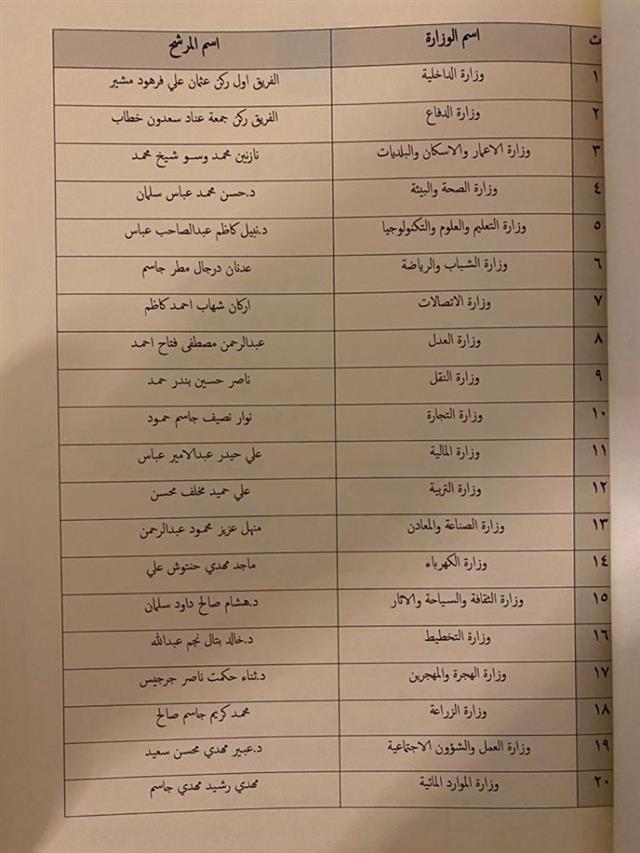 ت اسم الوزارة اسم المرشح
١ وزارة الداخلية الفريق اول ركن عثمان علي فرهود مشير
٢ وزارة الدفاع الفريق ركن جمعة عناد سعدون خطاب
٣ وزارة الاعمار والاسكان والبلديات نازنين محمد وسو شيخ محمد
٤ وزارة الصحة والبيئة د.حسن محمد عباس سلمان
٥ وزارة التعليم والعلوم والتكنولوجيا د.نبيل كاظم عبدالصاحب عباس
٦ وزارة الشباب والرياضة عدنان درجال مطر جاسم
٧ وزارة الاتصالات اركان شهاب احمد كاظم
٨ وزارة العدل عبدالرحمن مصطفى فتاح احمد
٩ وزارة النقل ناصر حسين بندر حمد
١٠ وزارة التجارة نوار نصيف جاسم حمود
١١ وزارة المالية علي حيدر عبدالامير عباس
١٢ وزارة التربية علي حميد مخلف محسن
١٣ وزارة الصناعة والمعادن منهل عزيز محمود عبدالرحمن
١٤ وزارة الكهرباء ماجد مهدي حنتوش علي
١٥ وزارة الثقافة والسياحة والاثار د.هشام صالح داود سلمان
١٦ وزارة التخطيط د.خالد بتال نجم عبدالله
١٧ وزارة الهجرة والمهجرين د.ثناء حكمت ناصر جرجيس
١٨ وزارة الزراعة محمد كريم جاسم صالح
١٩ وزارة العمل والشؤون الاجتماعية د.عبير مهدي محسن سعيد
٢٠ وزارة الموارد المائية مهدي رشيد مهدي جاسم